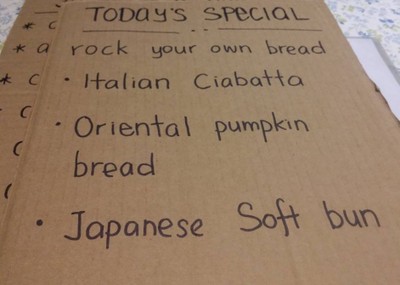 TODAY'S SPECIAL
rock your own bread
• Italian Ciabatta
• Oriental pumpkin
bread
• Japanese Soft bun